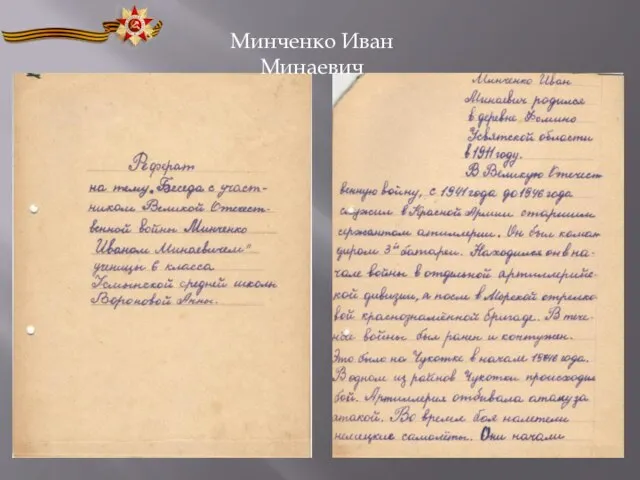 Минченко Иван
Минаевич
Реферат
на тему „Беседа с участ-
ником Великой Отечест-
венной войны Минченко
Иваном Минаевичем"
ученицы 6 класса
Усмынской средней школы
Вороновой Анны.
Минченко Иван
Минаевич родился
в деревне Фомино
Усвятской области
в 1911 году.
В Великую Отечест
венную войну, с 1941 года до 1946 года
служил в Красной Армии старшим
сержантом артиллерии. Он был коман
диром 3й батареи. Находился он в на-
чале войны в отдельной артиллерийс-
кой дивизии, а после в Морской стрелко
вой краснознамённой бригаде. В тече-
ние войны был ранен и контужен.
Это было на Чукотке в начале 1946 года.
В одном из районов Чукотки происходил
бой. Артиллерия отбивала атаку за
атакой. Во время боя налетели
немецкие самолёты. Они начали